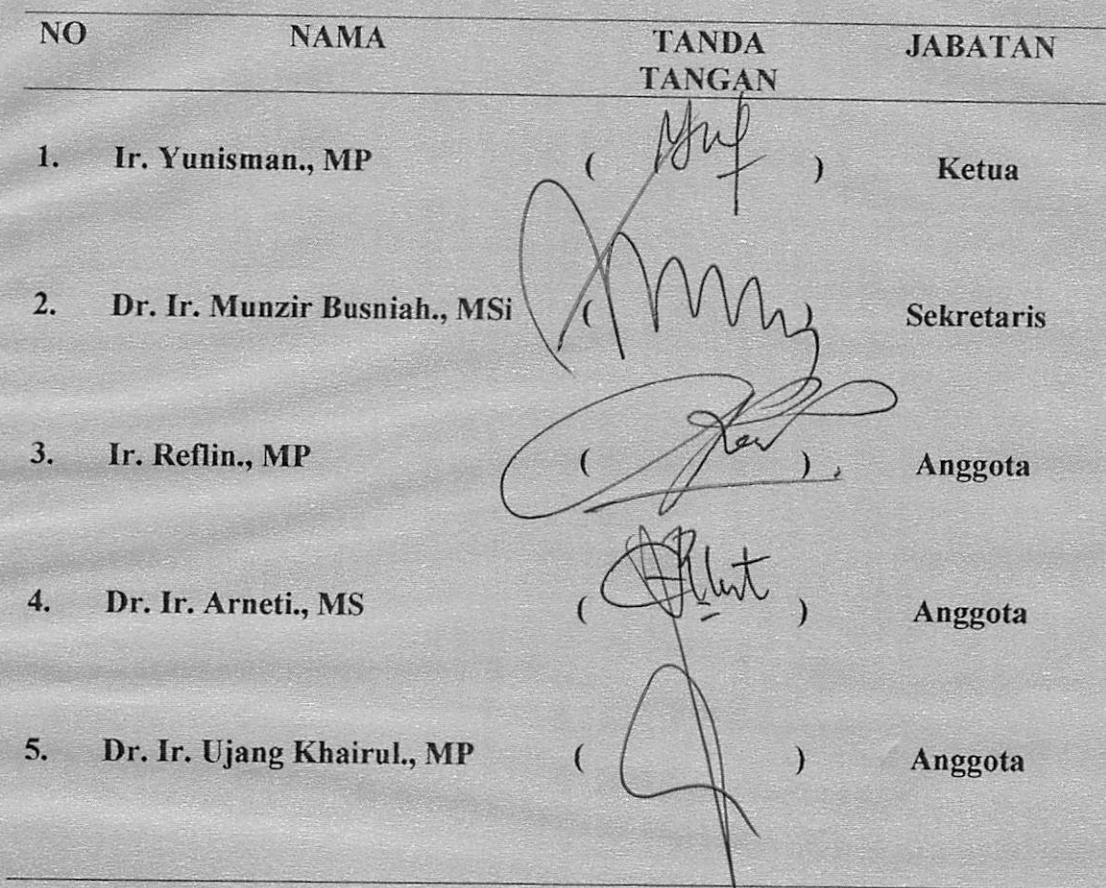 NO NAMA TANDA TANGAN JABATAN
1. Ir. Yunisman., MP ( ) Ketua
2. Dr. Ir. Munzir Busniah., MSi ( ) Sekretaris
3. Ir. Reflin., MP ( ) Anggota
4. Dr. Ir. Arneti., MS ( ) Anggota
5. Dr. Ir. Ujang Khairul., MP ( ) Anggota